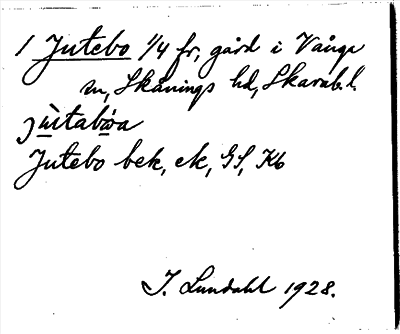 1 Jutebo 1/4 fr, gård i Vånge
sn, Skånings hd, Skarab. l.
jùtabὼa
Jutebo bek, ek, GS, Kb
I. Lundahl 1928.